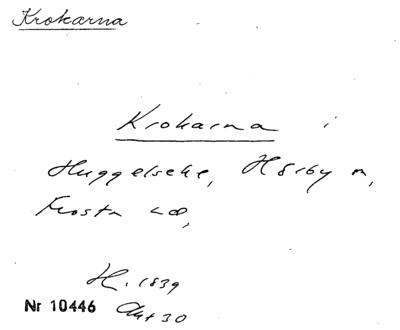 Krokarna
Krokarna i
Huggelseke, Hörby n,
Frosta
H. 1839
Nr 10446 Akt 30